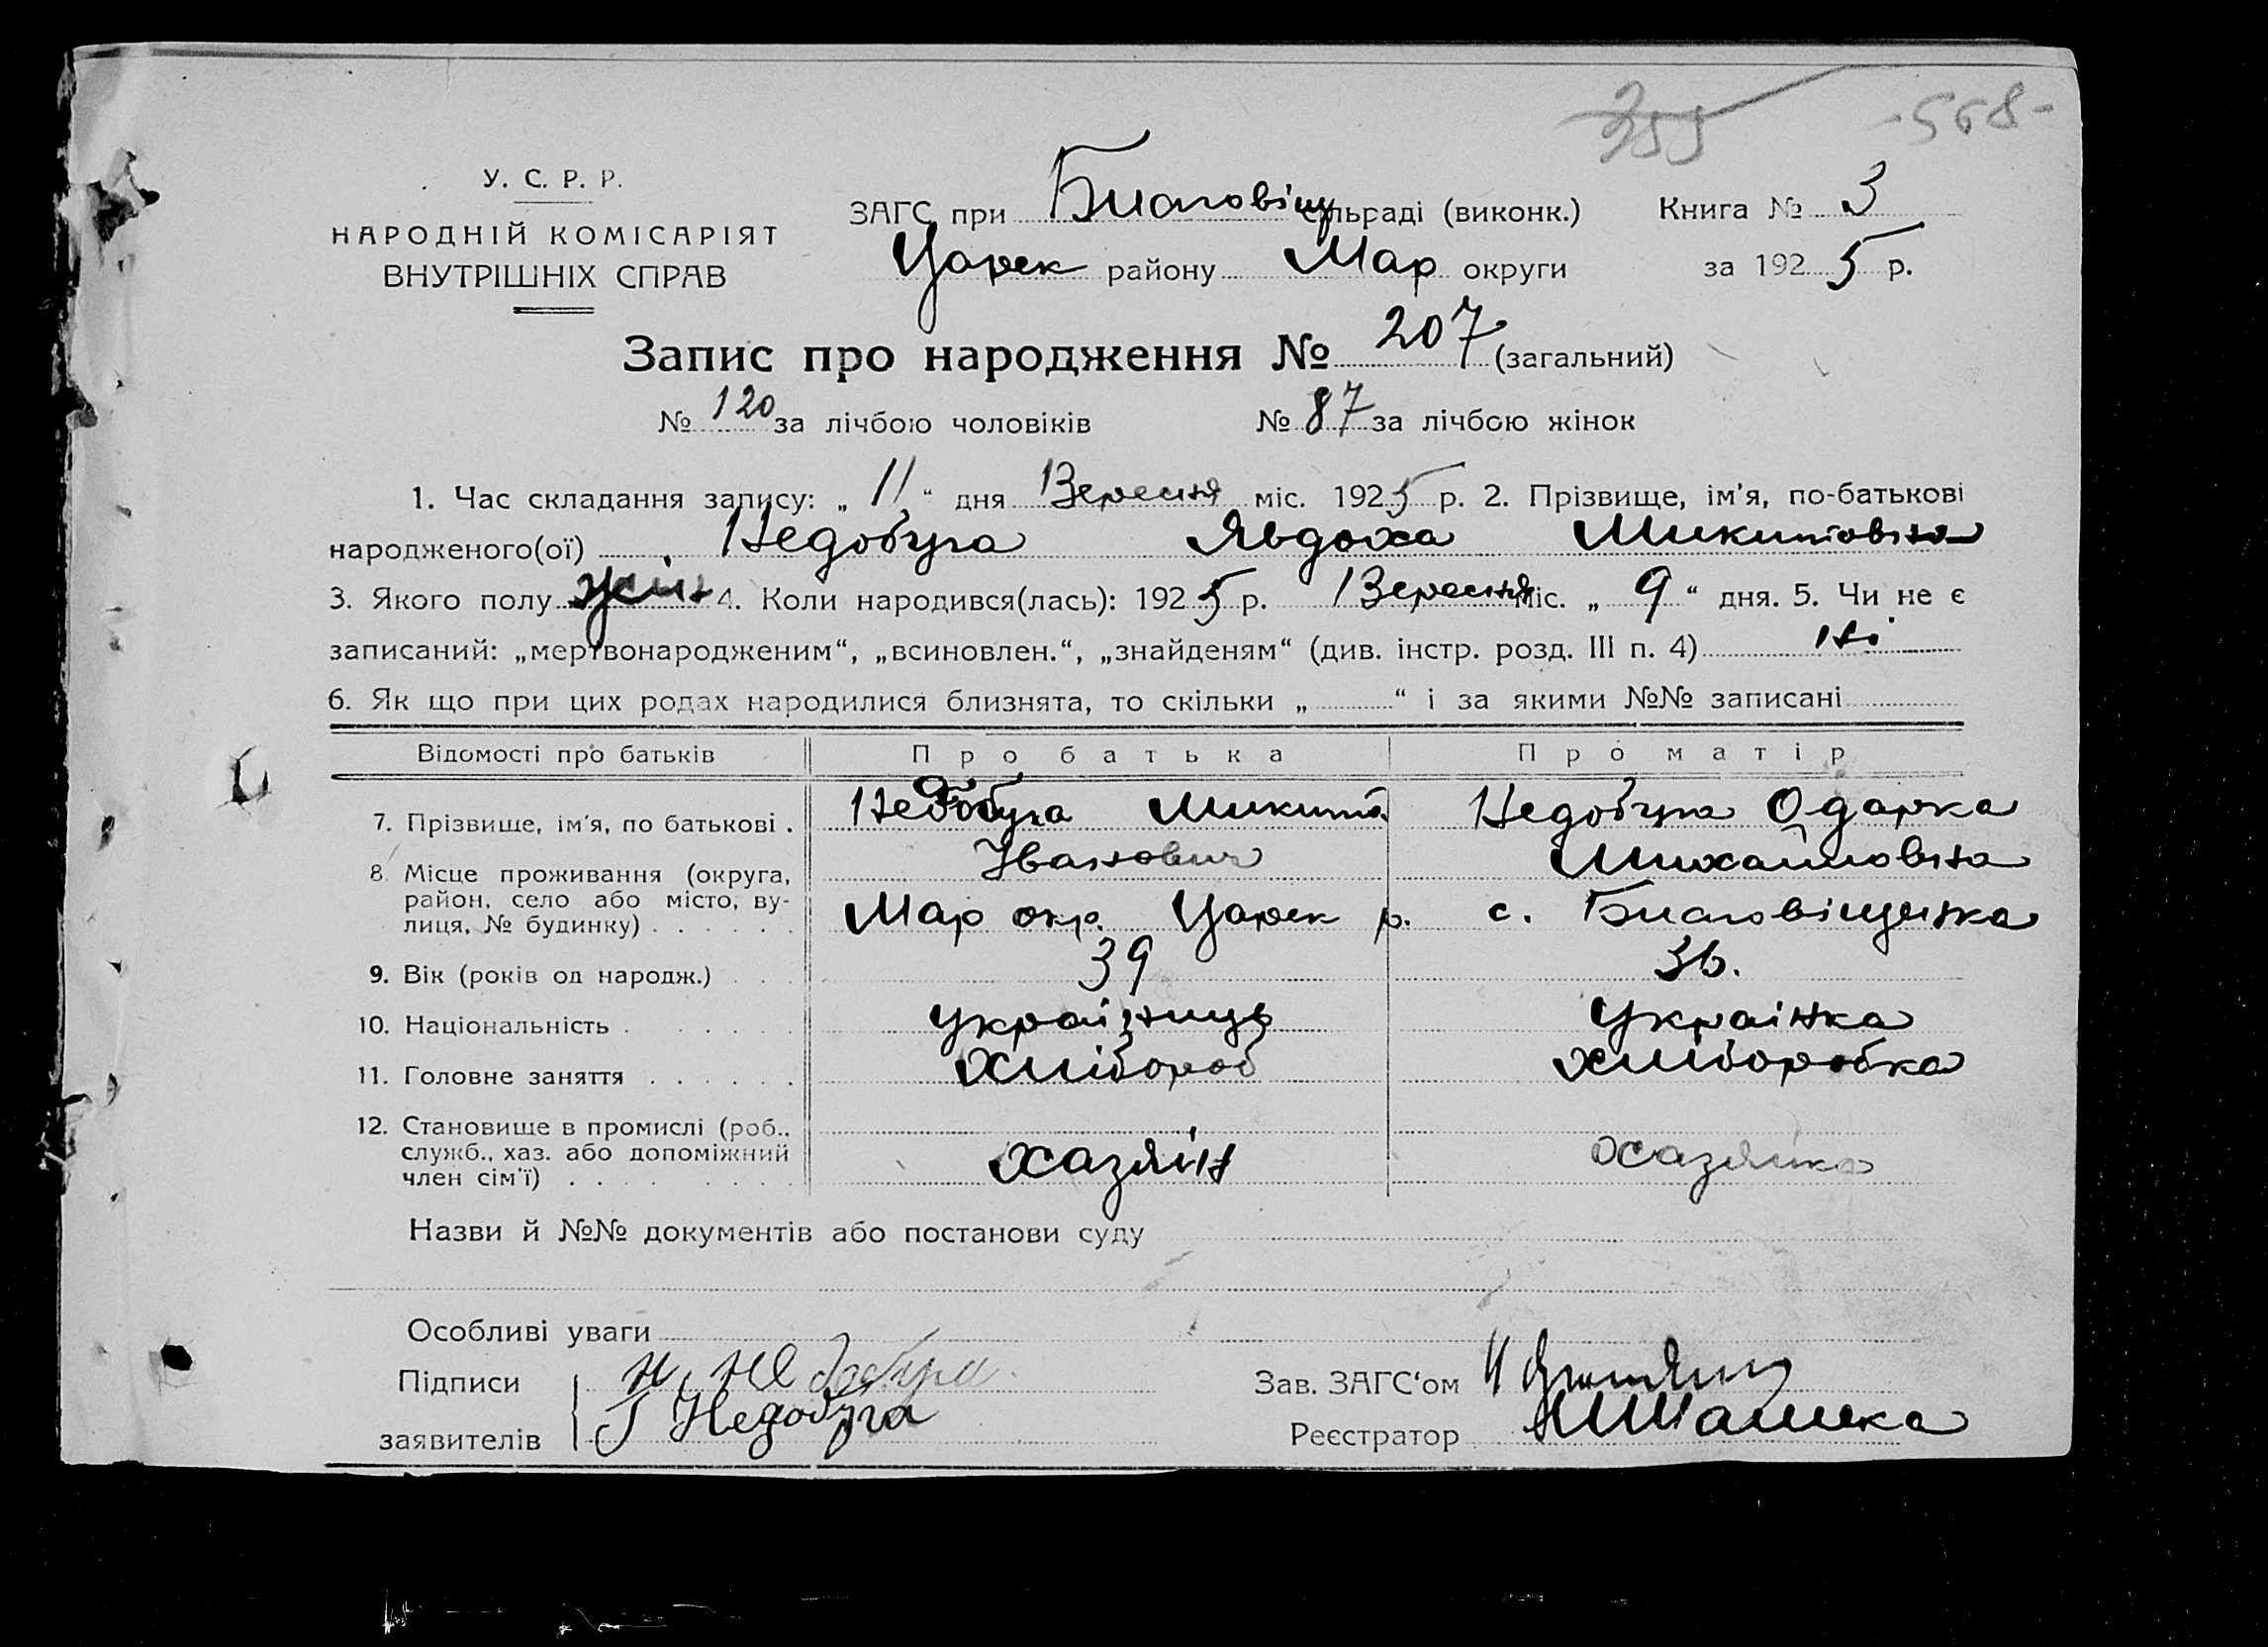 355 -568-
У. С. Р. Р.
НАРОДНІЙ КОМІСАРІЯТ
ВНУТРІШНІХ СПРАВ
ЗАГС при Благовіщ сільраді (виконк.) Книга № 3
Царек району Мар округи за 1925 р.
Запис про народження № 207 (загальний)
№ 120 за лічбою чоловіків № 87 за лічбою жінок
1. Час складання запису: „11“ дня Вересня міс. 1925 р. 2. Прізвище, ім'я, по-батькові
народженого(ої) Недобуга Явдоха Микитовна
3. Якого полу жін 4. Коли народився(лась): 1925 р. Вересня міс. „9“ дня. 5. Чи не є
записаний: „мертвонародженим“, „всиновлен.“, „знайденям“ (див. інстр. розд. III п. 4) ні
6. Як що при цих родах народилися близнята, то скільки „ “ і за якими №№ записані
Відомості про батьків Про батька Про матір
7. Прізвище, ім'я, по батькові . Недобуга Микита Недобуга Одарка
Іванович Михайловна
8. Місце проживання (округа,
район, село або місто, ву-
лиця, № будинку) . . . . . . Мар окр. Царек р. с. Благовіщенка
9. Вік (років од народж.) . . . 39 36.
10. Національність . . . . . . українець українка
11. Головне заняття . . . . . . хлібороб хліборобка
12. Становище в промислі (роб.,
служб., хаз. або допоміжний
член сім'ї) . . . . . . . . хазяїн хазяйка
Назви й №№ документів або постанови суду
Особливі уваги
Підписи Зав. ЗАГС'ом
заявителів Недобуга Реєстратор